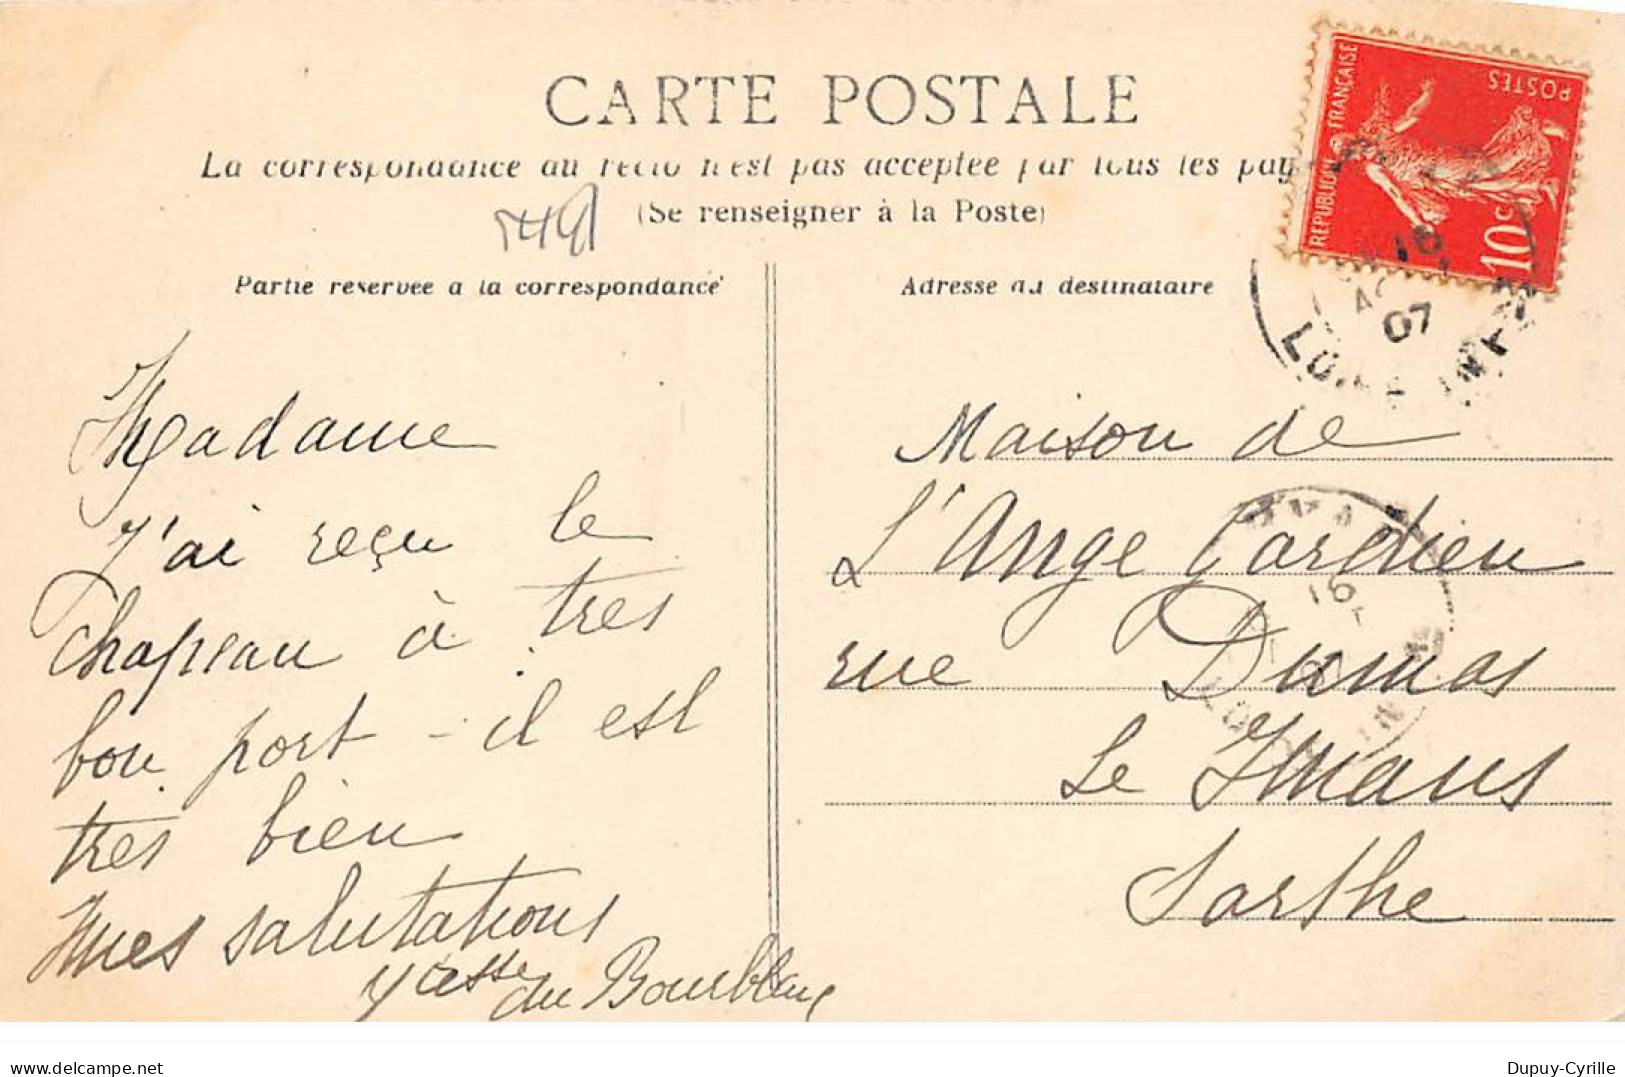 CARTE POSTALE
La correspondance au recto n'est pas acceptée par tous les pay
(Se renseigner à la Poste)
Partie réservée à la correspondance
Adresse du destinataire
REPUBLIQUE FRANÇAISE
POSTES
10c
16
07
LOIRE INF
Madame
J'ai reçu le
chapeau à tres
bon port - il est
tres bien
mes salutations
Vtesse du Bourblanc
Maison de
L'Ange Gardien
rue Dumas
Le Mans
Sarthe
16
delcampe.net
Dupuy-Cyrille